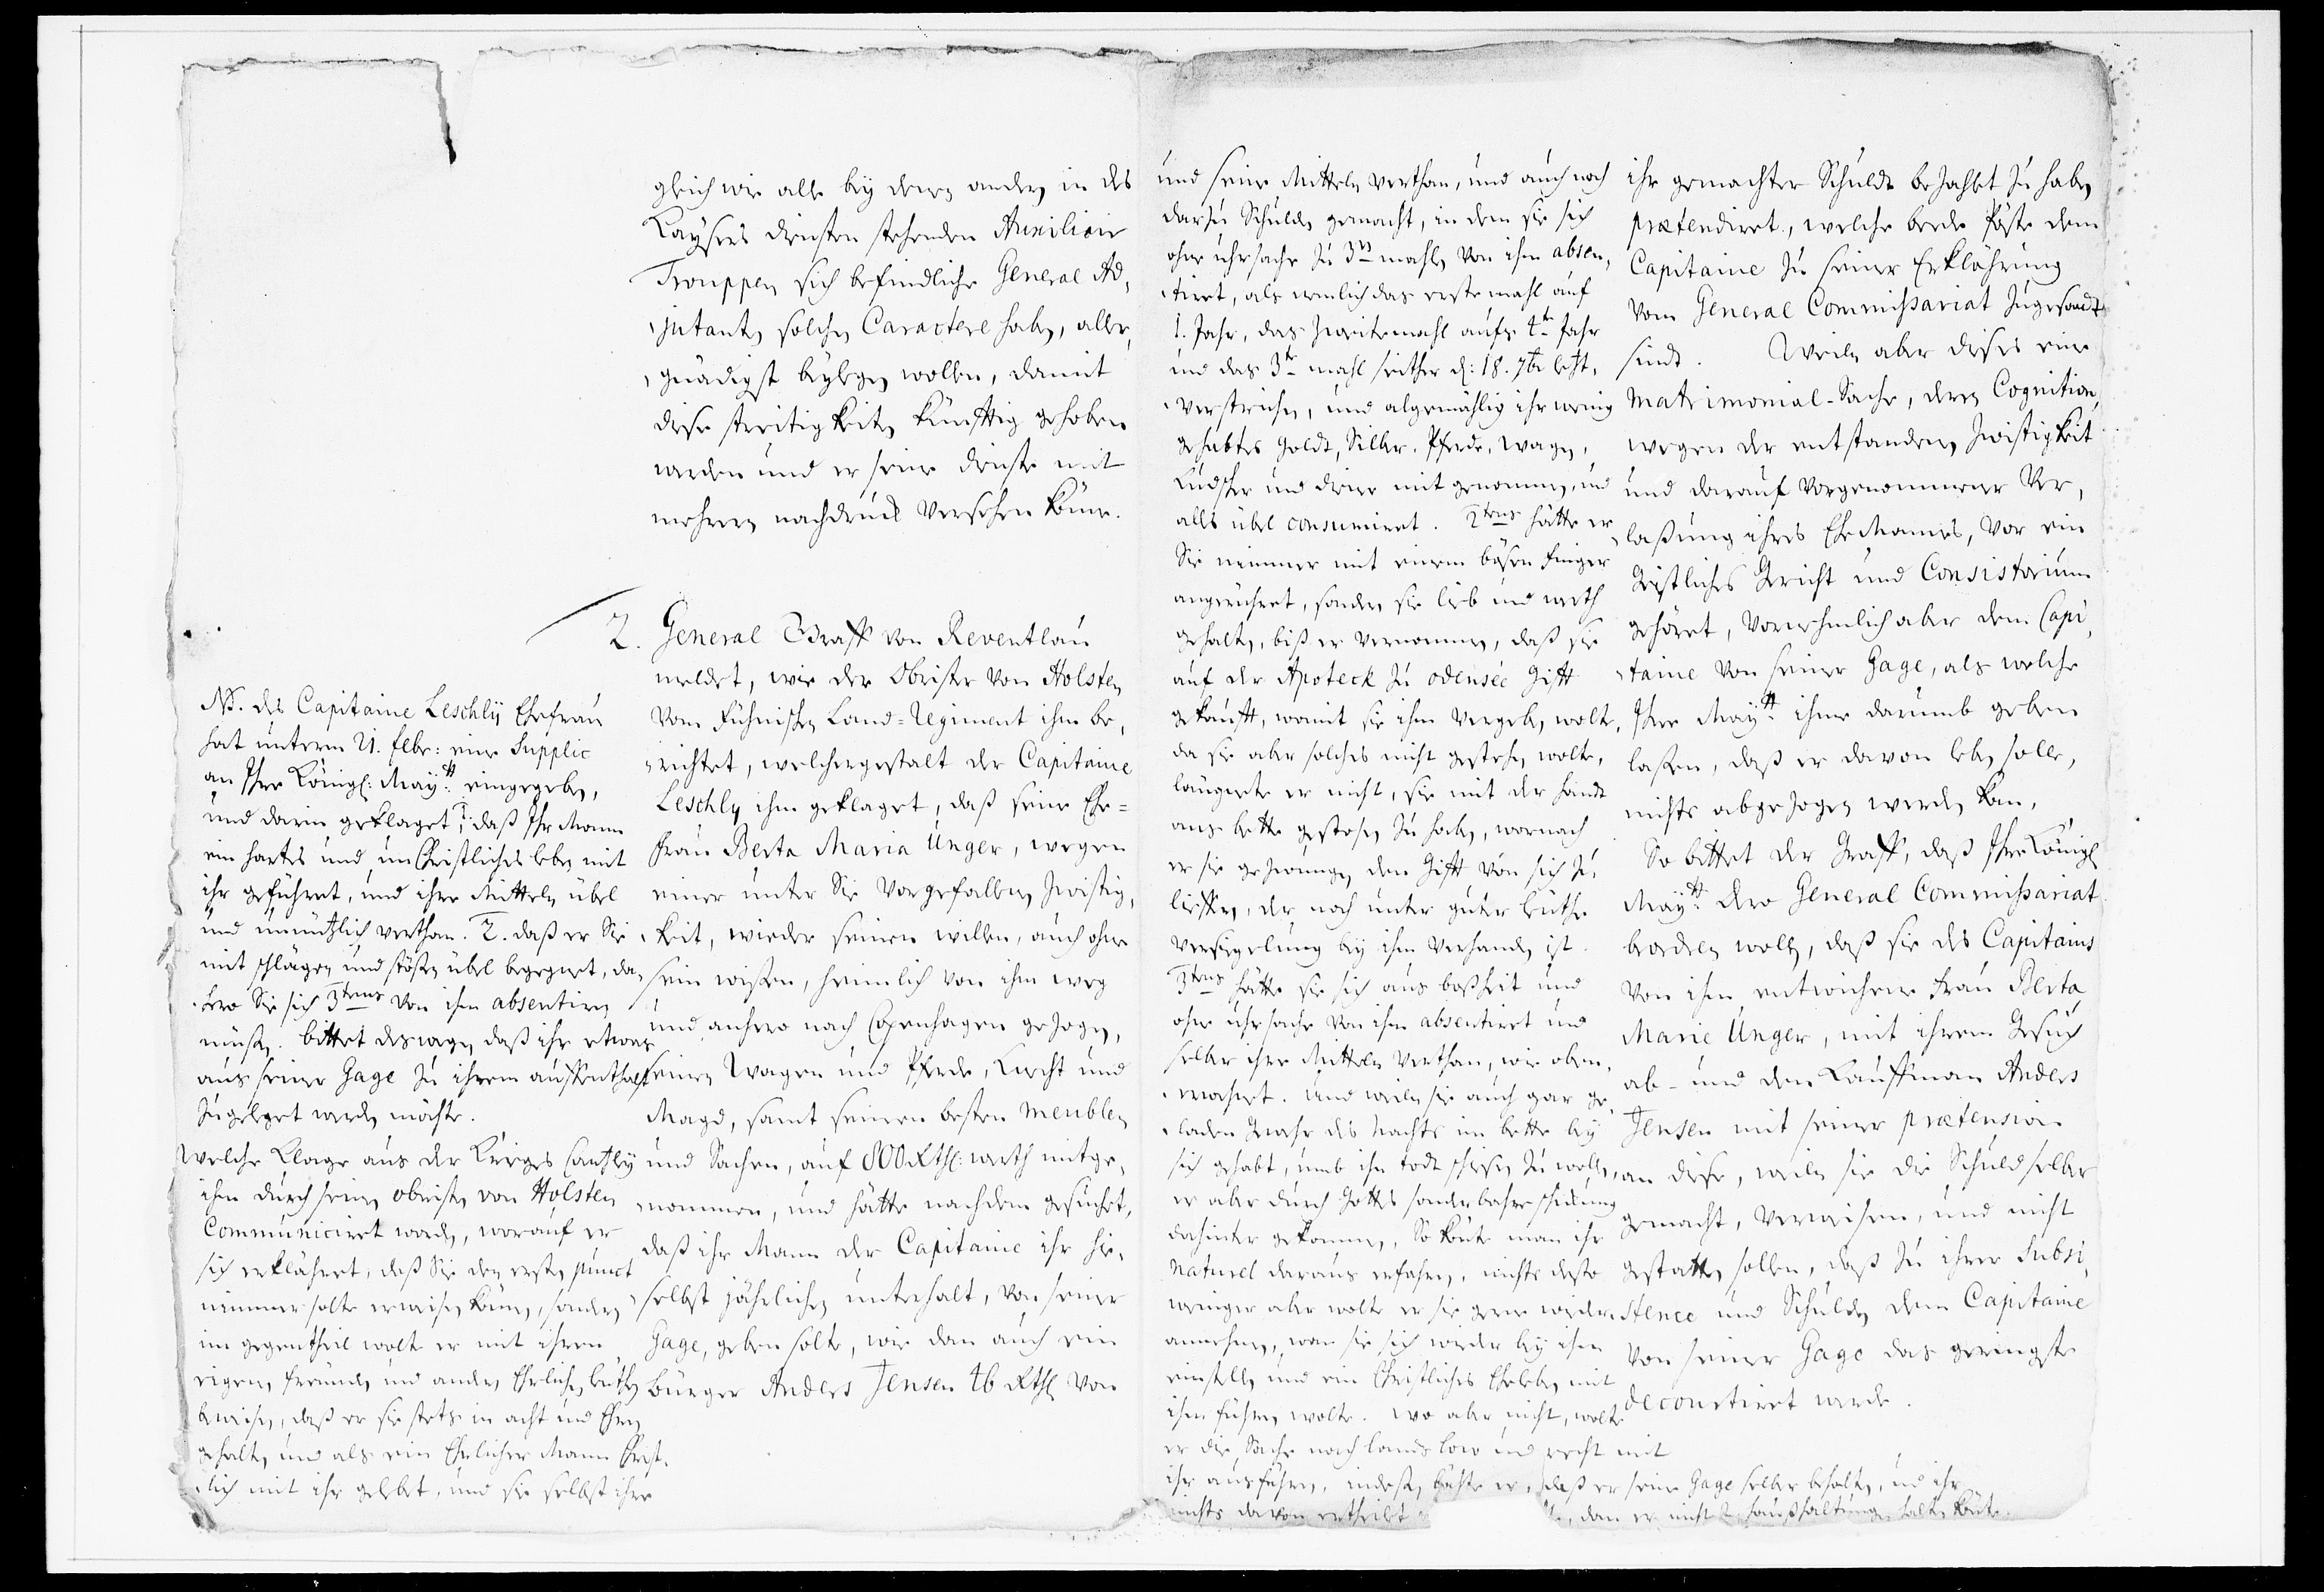 gleich wie alle bey denen andern in des
Kaysers diensten stehenden Auxiliair
Trouppen sich befindliche General Ad,
jutanten solchen Caractere haben, aller,
gnädigst beylegen wollen, damit
diese streitigkeiten künfftig gehoben
werden und er seine dienste mit
mehrern nachdruck versehen könne.
2. General Graff von Reventlau
meldet, wie der Obrister von Holsten
vom Fühnischen Land-Regiment ihm be,
richtet, welchergestalt der Capitaine
Leschly ihm geklaget, daß seine Ehe=
frau Berta Maria Unger, wegen
einer unter Sie vorgefallenen Zwistig,
keit, wieder seinen willen, auch ohne
sein wißen, heimlich von ihm weg
und anhero nach Copenhagen gezogen,
seinen Wagen und Pferde, Knecht und
Magd, samt seinen besten meublen
und Sachen, auf 800 Rthl: werth mitge,
nommen, und hätte nachdem gesuchet,
daß ihr Mann der Capitaine ihr hie,
selbst jährlichen unterhalt, von seiner
Gage, geben solte, wie dan auch ein
bürger Anders Jensen 46 Rthl von
NB. des Capitaine Leschly Ehefrau
hat unterm 21. febr: eine Supplic
an Ihre Königl: Mayt: eingegeben,
und darin geklaget, 1. daß Ihr Mann
ein hartes und unChristliches leben mit
ihr geführet, und ihre Mitteln übel
und unnützlich verthan. 2. daß er Sie
mit schlägen und stößen übel begegnet, da,
hero Sie sich 3tens von ihm absentiren
müßen. bittet deswegen, daß ihr etwas
aus seiner Gage zu ihrem auffenthalt
zugeleget werden möchte.
Welche Klage aus der Krieges Cantzley
ihm durch seinen obristen von Holsten
Communiciret worden, worauf er
sich erklähret, daß Sie den ersten punct
nimmer solte erweisen können, sondern
im gegentheil wolte er mit ihren
eigenen freunden und andern Ehrlichen leuthen
beweisen, daß er sie stets in acht und Ehren
gehalten und als ein Ehrlicher Mann Christ,
lich mit ihr gelebet, und sie selbst ihre
und seine Mitteln verthan, und auch noch
darzu Schulden gemacht, in dem sie sich
ohne uhrsache zu 3en mahlen von ihm absen,
tiret, als nemlich das erste mahl auf
1. Jahr, das zweitemahl aufs 4te Jahr
und das 3te mahl seither d: 18. 7br letzt,
verstrichen, und algemählig ihr wenig
gehabtes goldt, Silber, Pferde, wagen,
Kudscher und diener mit genommen, und
alls übel consumiret. 2tens hätte er
Sie nimmer mit einem bösen finger
angerühret, sondern sie lieb und werth
gehalten, biß er vernommen, daß sie
auf der Apoteck zu odensée Gifft
gekaufft, womit sie ihm vergeben wolte,
da sie aber solches nicht gestehen wolte,
läugnete er nicht, sie mit der handt
ans bette gestoßen zu haben, wornach
er sie gezwungen den Gifft von sich zu
lieffern, der noch unter guter leuthe
versigelung bey ihm verhanden ist.
3tens hätte sie sich aus boßheit und
ohne uhrsache von ihm absentiret und
selber ihre Mitteln verthan, wie oben,
erwehnet. Und weilen sie auch gar ge,
laden Gewehr des Nachts im bette bey
sich gehabt, umb ihn todt schießen zu wollen,
er aber durch Gottes sonderbahre schickung
dahinter gekommen, So könte man ihr
naturel daraus erfahren, nichts desto
weniger aber wolte er sie gerne wieder
annehmen, wan sie sich wieder bey ihm
einstellen und ein Christliches Eheleben mit
ihm führen wolte. wo aber nicht, wolte
er die Sache nach lands low und recht mit
ihr ausführen, indeßen bähte er, daß er seine Gage selber behalten, und ihr
nichts davon ertheilet, dan er nicht 2 haußhaltungen halten könte.
ihr gemachter Schuldt bezahlet zu haben
prætendiret, welche beede Pöste dem
Capitaine zu seiner Erklährung
vom General Commißariat zugesandt
sindt. Weilen aber dieses eine
Matrimonial-Sache, deren Cognition,
wegen der entstandenen Zwistigkeit
und darauf vorgenommener Ver,
laßung ihres EheMannes, vor ein
Geistliches Gericht und Consistorium
gehöret, vornehmlich aber dem Capi,
taine von seiner Gage, als welche
Ihre Mayt: ihme darumb geben
laßen, daß er davon leben solle,
nichts abgezogen werden kan,
So bittet der Graff, daß Ihre Königl
Mayt: dero General Commißariat
beordern wollen, daß sie des Capitains
von ihm entwichene frau Berta
Marie Unger, mit ihrem Gesuch
ab- und den Kauffman Anders
Jensen mit seiner prætension
an diese, weilen sie die Schuld selber
gemacht, verweisen, und nicht
gestatten sollen, daß zu ihrer Subsi,
stence und Schulden dem Capitaine
von seiner Gage das geringste
decourtiret werde.